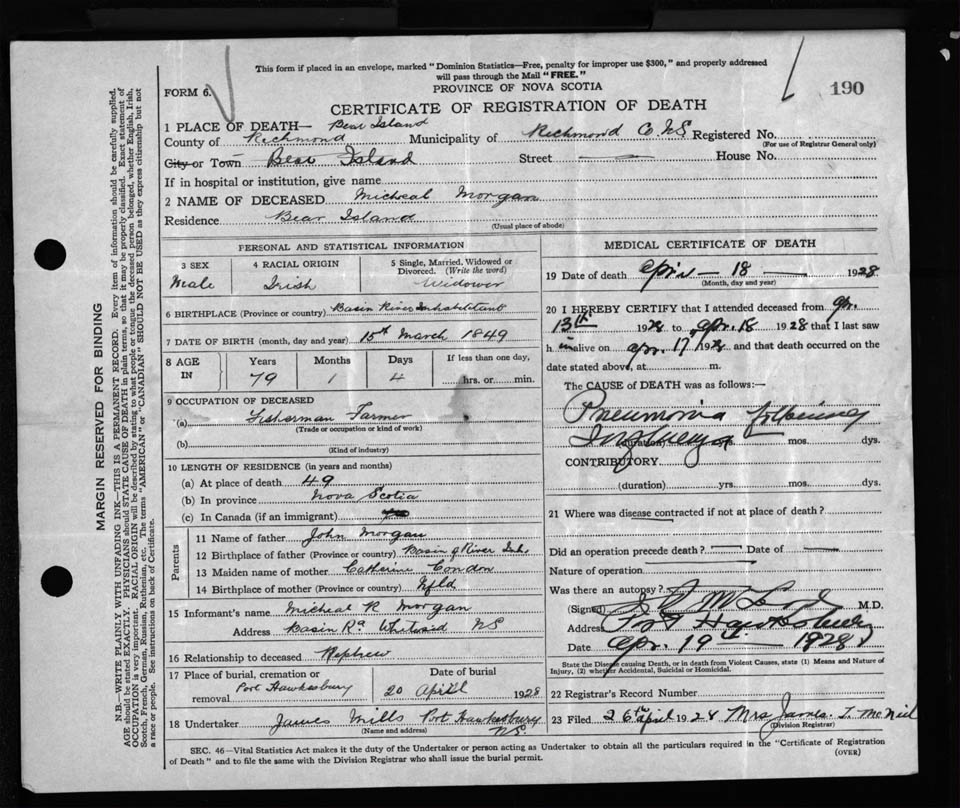 This form if placed in an envelope, marked "Dominion Statistics—Free, penalty for improper use $300," and properly addressed
will pass through the Mail "FREE."
FORM 6.
PROVINCE OF NOVA SCOTIA
190
CERTIFICATE OF REGISTRATION OF DEATH
1 PLACE OF DEATH— Bear Island
County of Richmond Municipality of Richmond Co NS Registered No.
(For use of Registrar General only)
City or Town Bear Island Street — House No.
If in hospital or institution, give name
2 NAME OF DECEASED Micheal Morgan
Residence Bear Island
(Usual place of abode)
PERSONAL AND STATISTICAL INFORMATION
3 SEX
Male
4 RACIAL ORIGIN
Irish
5 Single, Married, Widowed or
Divorced. (Write the word)
Widower
6 BIRTHPLACE (Province or country) Basin River Inhabitant
7 DATE OF BIRTH (month, day and year) 15th March 1849
8 AGE IN
Years Months Days If less than one day,
79 1 4 hrs. or min.
9 OCCUPATION OF DECEASED
(a) Fisherman Farmer
(Trade or occupation or kind of work)
(b)
(Kind of industry)
10 LENGTH OF RESIDENCE (in years and months)
(a) At place of death 49
(b) In province Nova Scotia
(c) In Canada (if an immigrant)
Parents
11 Name of father John Morgan
12 Birthplace of father (Province or country) Basin of River Inh.
13 Maiden name of mother Catherine Condon
14 Birthplace of mother (Province or country) Nfld
15 Informant's name Micheal R Morgan
Address Basin Rd Whiteside NS
16 Relationship to deceased Nephew
17 Place of burial, cremation or
removal Port Hawkesbury
Date of burial
20 April 1928
18 Undertaker James Mills Port Hawkesbury
(Name and address) NS.
MEDICAL CERTIFICATE OF DEATH
19 Date of death April — 18 — 1928
(Month, day and year)
20 I HEREBY CERTIFY that I attended deceased from Apr.
13th 1928 to Apr. 18 1928 that I last saw
h im alive on Apr. 17 1928 and that death occurred on the
date stated above, at m.
The CAUSE OF DEATH was as follows:—
Pneumonia following
Influenza (duration) mos. dys.
CONTRIBUTORY
(duration) yrs. mos. dys.
21 Where was disease contracted if not at place of death?
Did an operation precede death? — Date of —
Nature of operation
Was there an autopsy?
(Signed) M.D.
Address Port Hawkesbury
Date Apr. 19th 1928
State the Disease causing Death, or in death from Violent Causes, state (1) Means and Nature of
Injury, (2) whether Accidental, Suicidal or Homicidal.
22 Registrar's Record Number
23 Filed 26th April 1928 Mrs James T. McNeil
(Division Registrar)
SEC. 46—Vital Statistics Act makes it the duty of the Undertaker or person acting as Undertaker to obtain all the particulars required in the "Certificate of Registration
of Death" and to file the same with the Division Registrar who shall issue the burial permit.
(OVER)
MARGIN RESERVED FOR BINDING
N.B.—WRITE PLAINLY WITH UNFADING INK—THIS IS A PERMANENT RECORD. Every item of information should be carefully supplied.
AGE should be stated EXACTLY. PHYSICIANS should STATE CAUSE OF DEATH in plain terms, so that it may be properly classified. Exact statement of
OCCUPATION is very important. RACIAL ORIGIN will be described by stating to what people or tongue the deceased person belonged, whether English, Irish,
Scotch, French, German, Russian, Ruthenian, etc. The terms "AMERICAN" or "CANADIAN" SHOULD NOT BE USED as they express citizenship but not
a race or people. See instructions on back of Certificate.